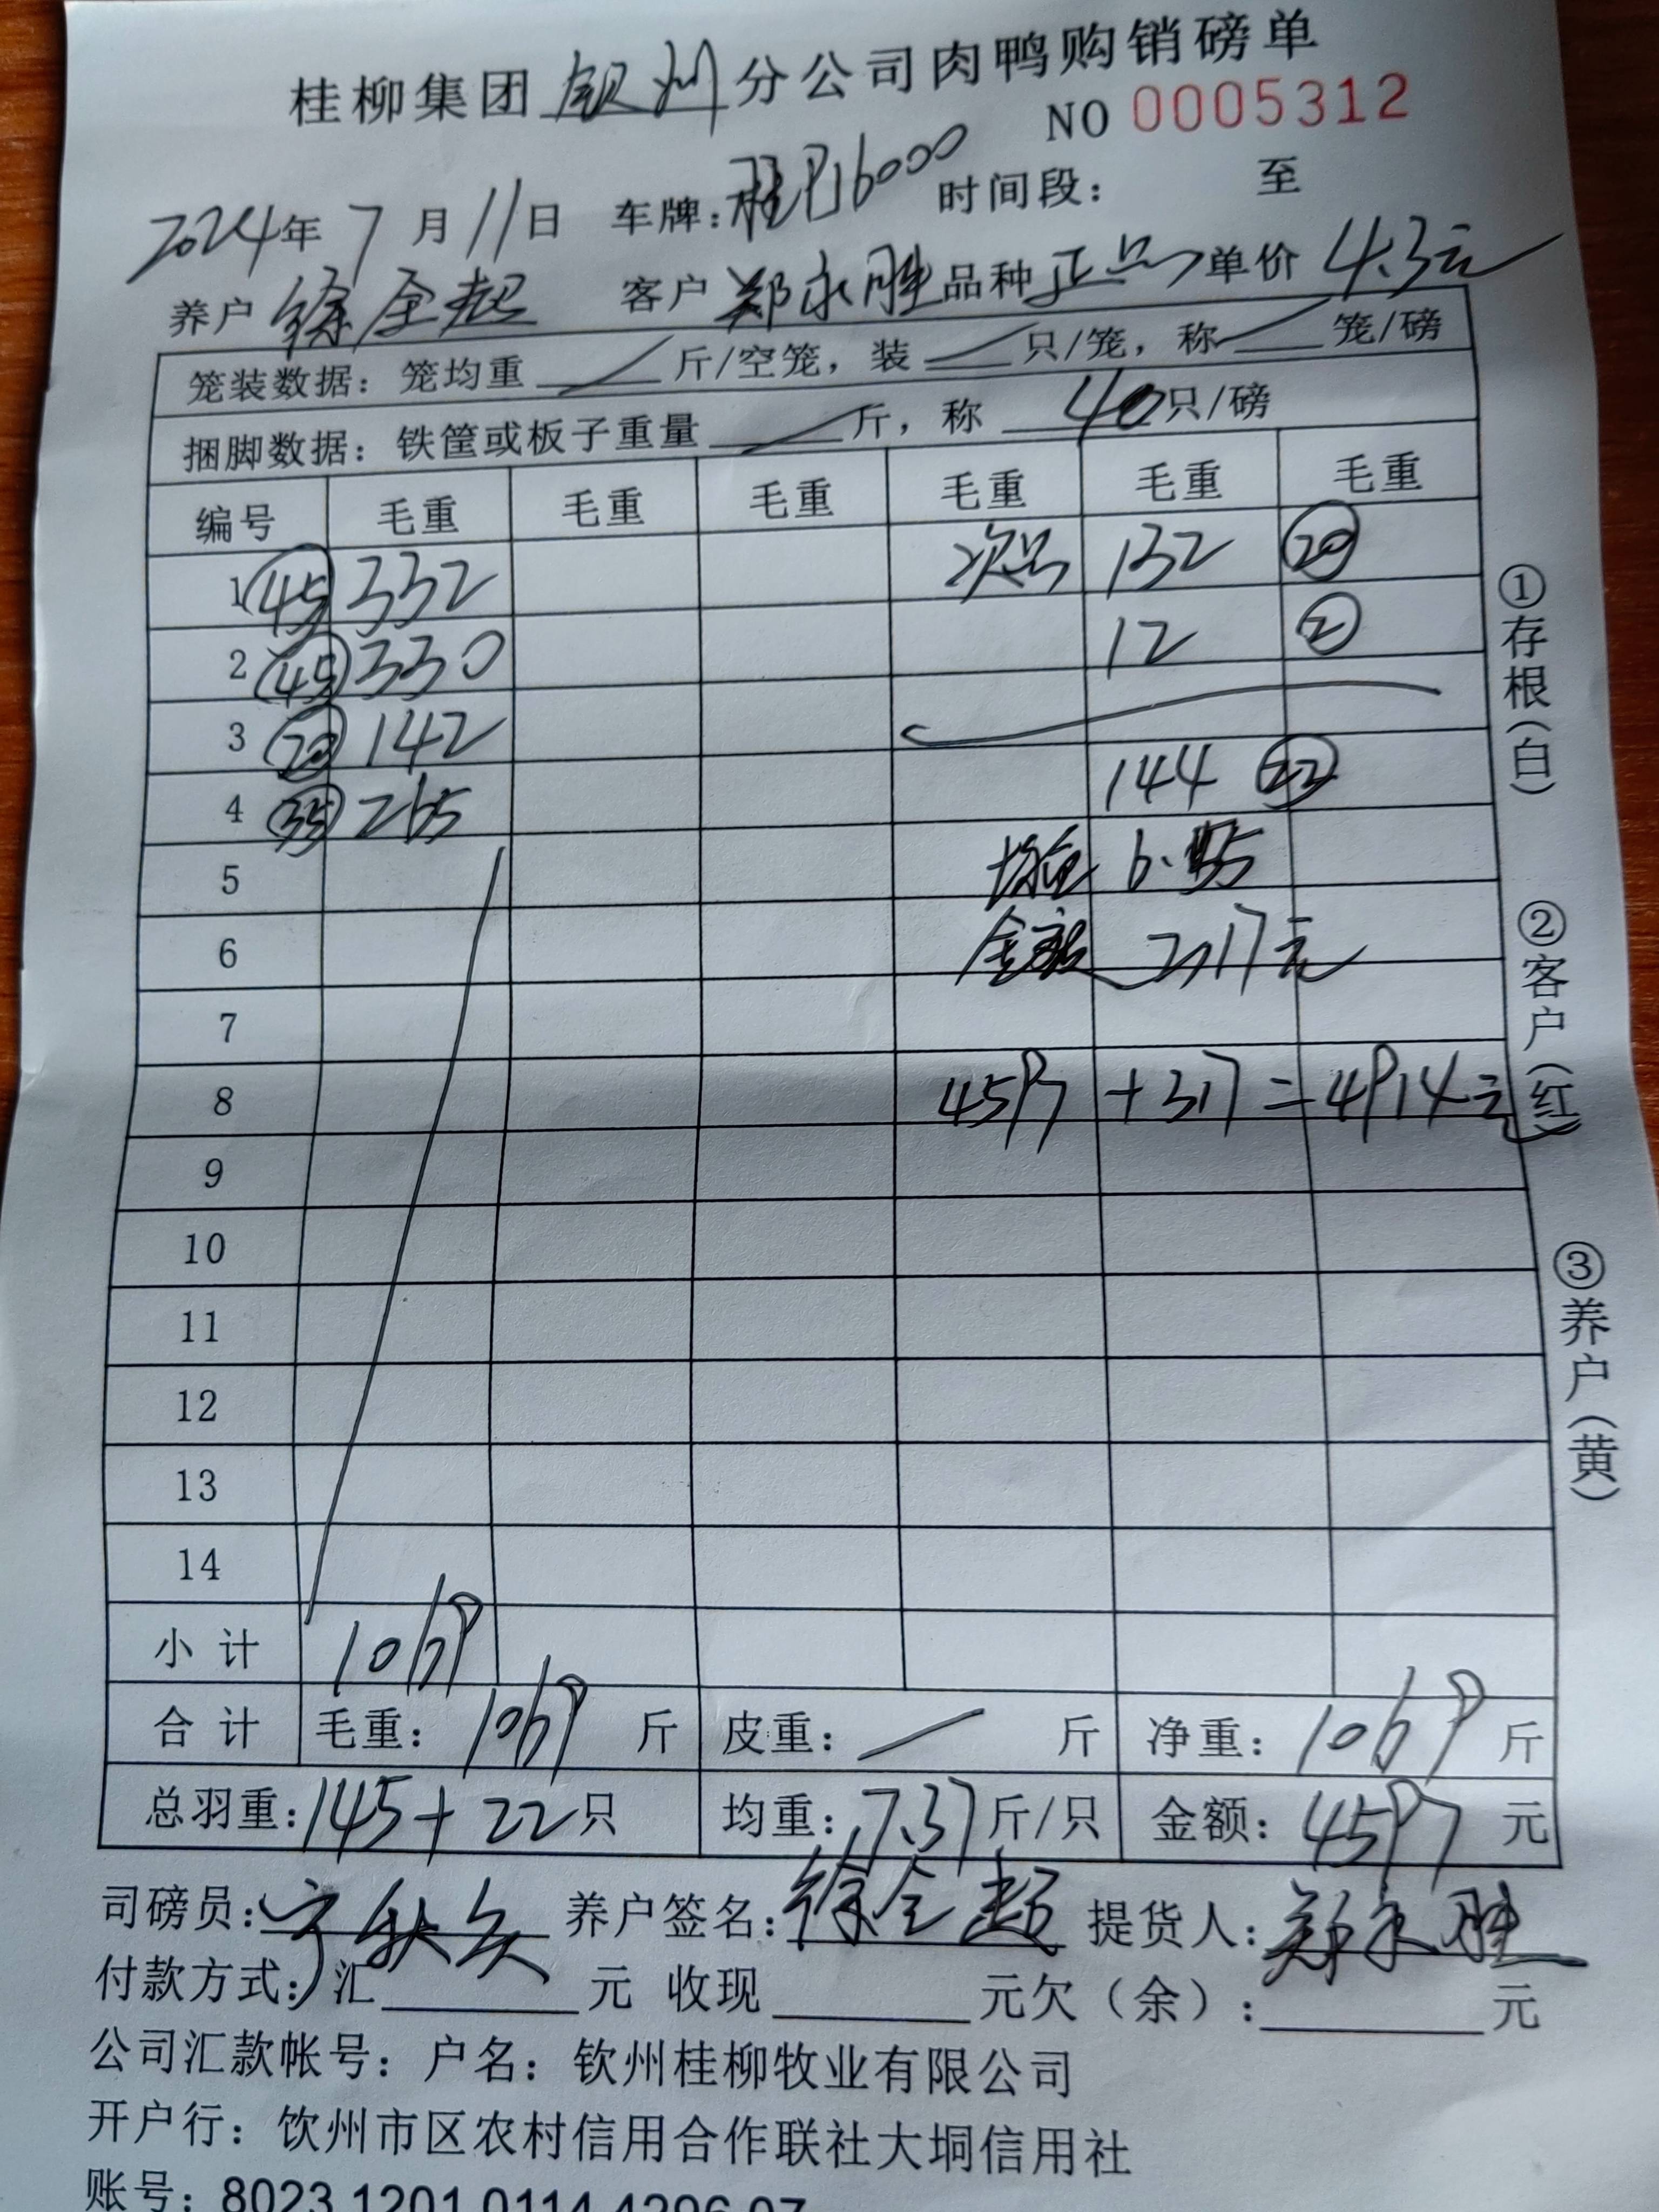 桂柳集团 钦州 分公司肉鸭购销磅单
NO 0005312
2024年 7 月 11 日 车牌：桂P16000 时间段： 至
养户 徐全超 客户 郑永胜 品种 正品 单价 4.3元
笼装数据：笼均重 斤/空笼，装 只/笼，称 笼/磅
捆脚数据：铁筐或板子重量 斤，称 40 只/磅
编号 毛重 毛重 毛重 毛重 毛重 毛重
1 45 332 次品 132 20
2 45 330 12 2
3 20 142
4 35 265 144 22
5 均重 6.55
6 金额
7
8 4597 +317 = 4914元
9
10
11
12
13
14
小计 1069
合计 毛重：1069 斤 皮重： 斤 净重：1069 斤
总羽重：145+22只 均重：7.37斤/只 金额：4597 元
司磅员：宁秋久 养户签名：徐全超 提货人：郑永胜
付款方式：汇 元 收现 元欠（余）： 元
公司汇款帐号：户名：钦州桂柳牧业有限公司
开户行：钦州市区农村信用合作联社大垌信用社
账号：8023 1201 0114 4296 07
①存根（白）
②客户（红）
③养户（黄）